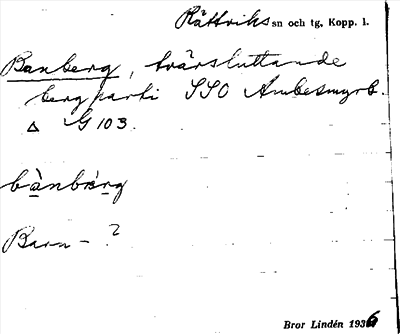 Rättviks sn och tg, Kopp. l.
Banberg, tvärsluttande
bergparti SSO Ambesmyrb.
△ G 103.
bànbärg
Barn - ?
Bror Lindén 1936